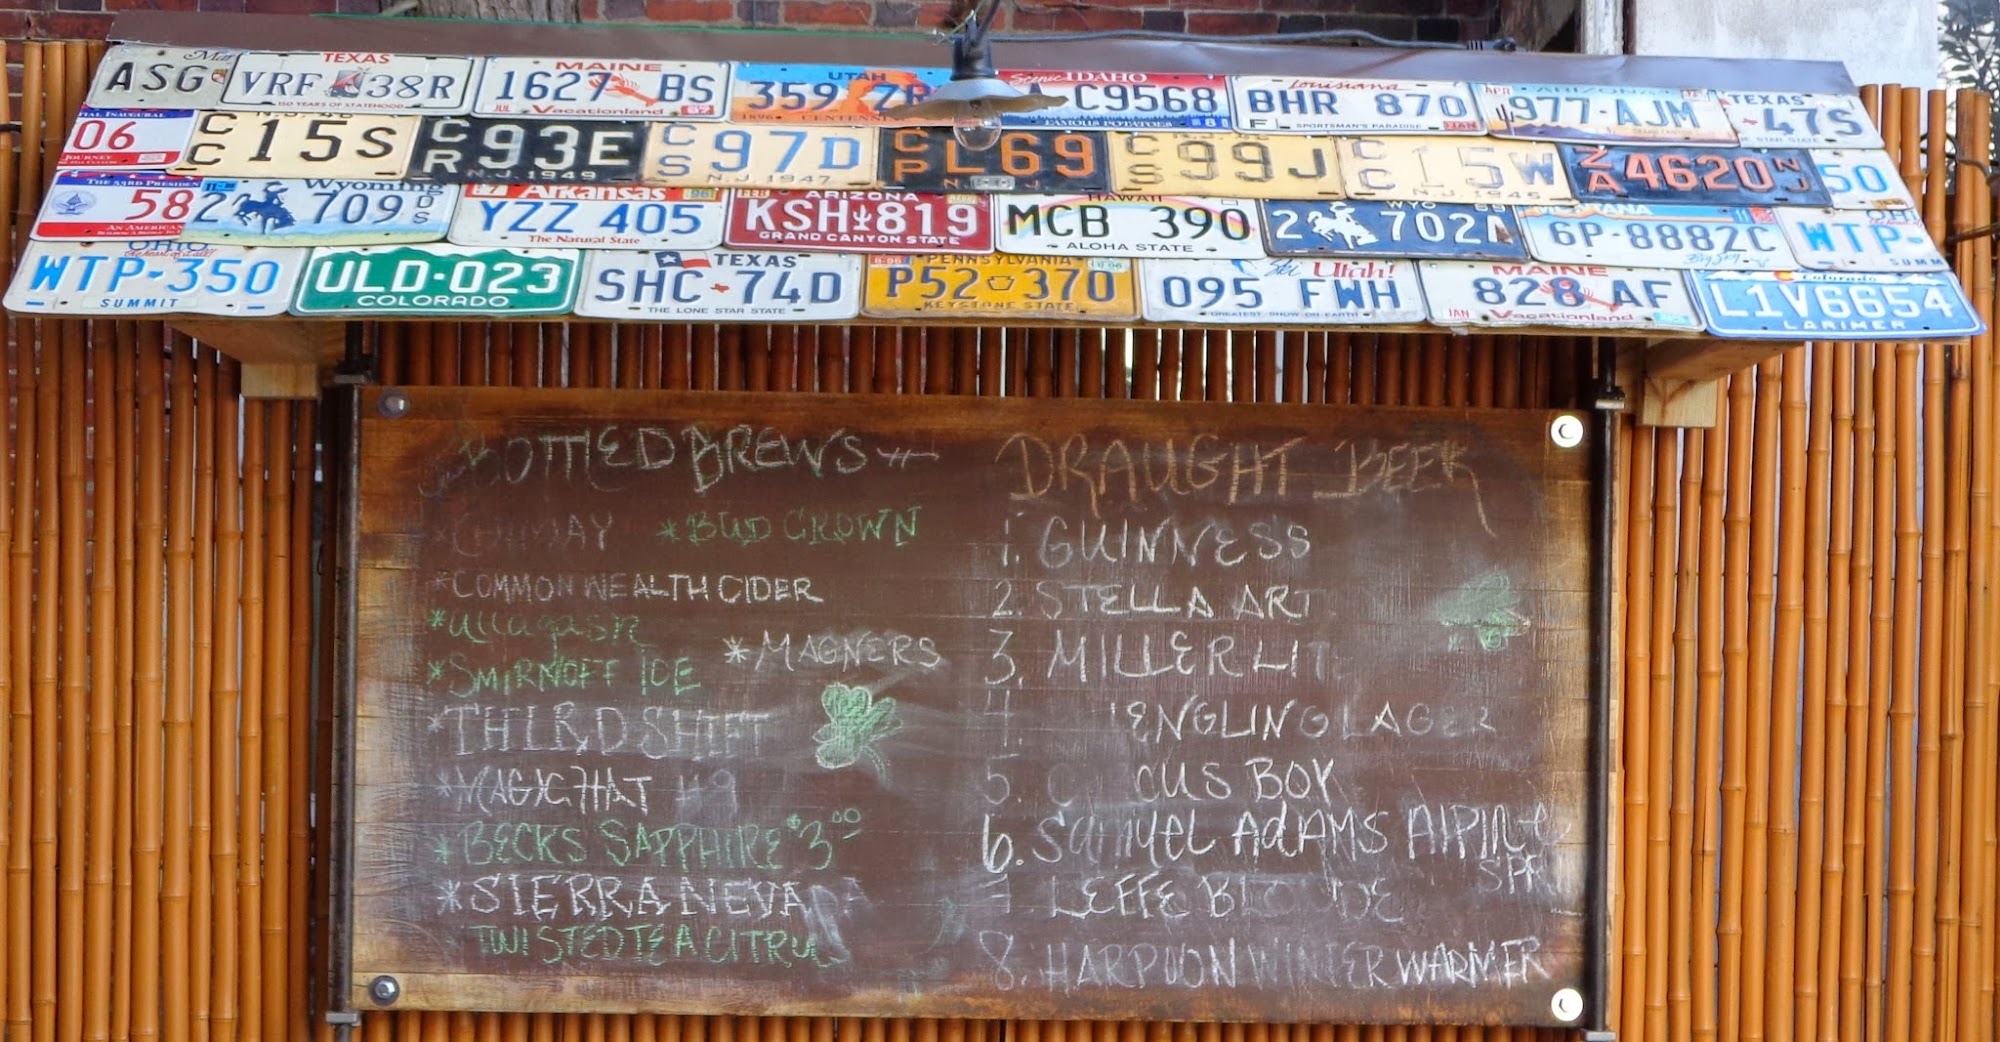 ASG
TEXAS
VRF 38R
150 YEARS OF STATEHOOD
MAINE
1627 BS
JUL Vacationland 67
UTAH
359 ZB
1896 CENTENNIAL
Scenic IDAHO
A C9568
FAMOUS POTATOES 8
Louisiana
BHR 870
SPORTSMAN'S PARADISE JAN
APR ARIZONA
977·AJM
TEXAS
47S
INAUGURAL
06
JOURNEY
CC 15S
CR 93E
N.J. 1949
CS 97D
N.J. 1947
CP L69
N J
CS 99J
CC 15W
N.J. 1946
ZA 4620 NJ
50
THE 53RD PRESIDEN
58
AN AMERICAN
Wyoming
2 709
Arkansas 96
YZZ 405
The Natural State
FEB ARIZONA
KSH 819
GRAND CANYON STATE
HAWAII
MCB 390
ALOHA STATE
WYO
2 702
MONTANA 11
6P·8882C
Big Sky
WTP·
SUMM
OHIO
the heart of it all!
WTP·350
SUMMIT
ULD·023
COLORADO
TEXAS
SHC 74D
THE LONE STAR STATE
PENNSYLVANIA
P52 370
KEYSTONE STATE
Ski Utah!
095 FWH
GREATEST SNOW ON EARTH
MAINE
828 AF
JAN Vacationland
Colorado
L1V6654
LARIMER
BOTTLED BREWS
*CHIMAY *BUD CROWN
*COMMONWEALTH CIDER
*allagash
*MAGNERS
*SMIRNOFF ICE
*THIRD SHIFT
*MAGIC HAT #9
*BECKS SAPPHIRE $3.00
*SIERRA NEVADA
*TWISTED TEA CITRUS
DRAUGHT BEER
1. GUINNESS
2. STELLA ART
3. MILLER LIT
4. ENGLING LAGER
5. C CUS BOK
6. SAMUEL ADAMS ALPINE
SPR
LEFFE BLONDE
8. HARPOON WINTER WARMER